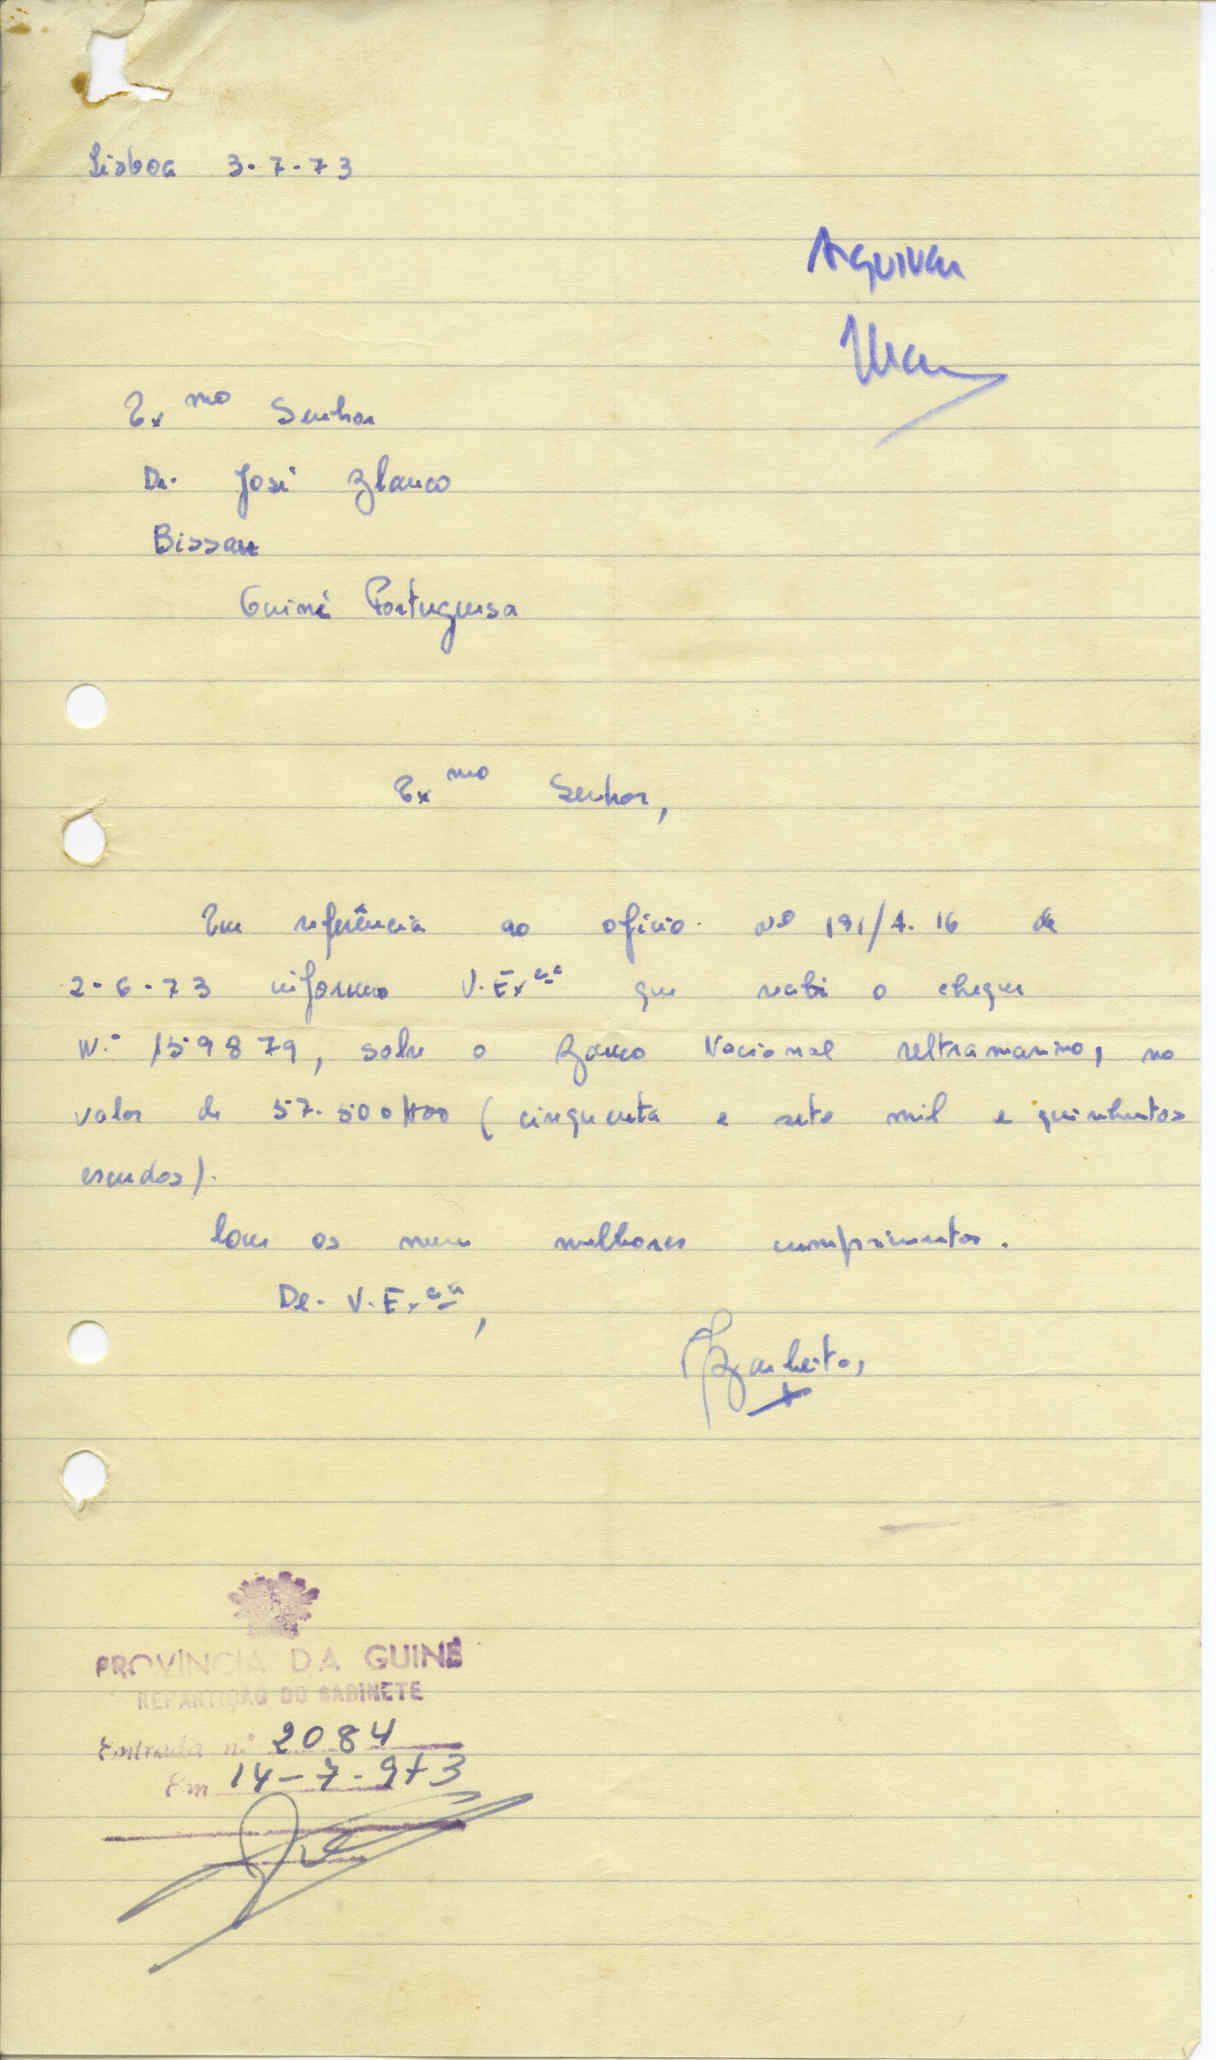 Lisboa 3-7-73
Arquivar
Exmo Senhor
Dr. José Blanco
Bissau
Guiné Portuguesa
Exmo Senhor,
Em referência ao ofício nº 191/A. 16 de
2-6-73 informo V. Excia que recebi o cheque
N.º 159879, sobre o Banco Nacional Ultramarino, no
valor de 57.500$00 (cinquenta e sete mil e quinhentos
escudos).
Com os meus melhores cumprimentos.
De. V. Excia,
PROVÍNCIA DA GUINÉ
REPARTIÇÃO DO GABINETE
Entrada n.º 2084
Em 14-7-973